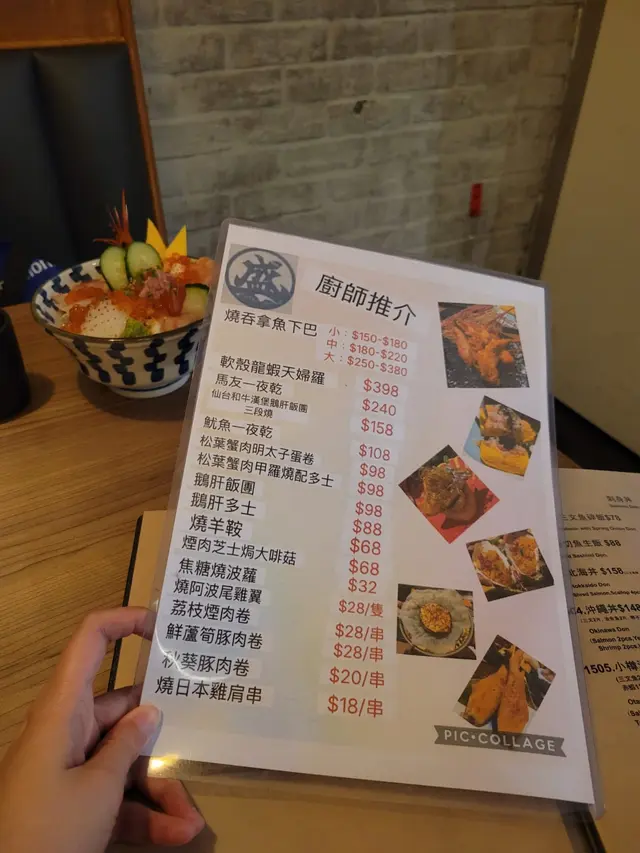 廚師推介
燒吞拿魚下巴 小：$150-$180
中：$180-$220
大：$250-$380
軟殼龍蝦天婦羅 $398
馬友一夜乾 $240
仙台和牛漢堡鵝肝飯團
三段燒 $158
魷魚一夜乾 $108
松葉蟹肉明太子蛋卷 $98
松葉蟹肉甲羅燒配多士 $98
鵝肝飯團 $98
鵝肝多士 $88
燒羊鞍 $68
煙肉芝士焗大啡菇 $68
焦糖燒波蘿 $32
燒阿波尾雞翼 $28/隻
荔枝煙肉卷 $28/串
鮮蘆筍豚肉卷 $28/串
秋葵豚肉卷 $20/串
燒日本雞肩串 $18/串
PIC•COLLAGE
三文魚碎飯$78
切魚生飯 $88
北海丼 $158
Hokkaido Don
4.沖繩丼$148
Okinawa Don
1505.小樽